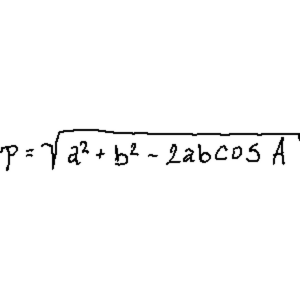 p = √a² + b² - 2abcos A